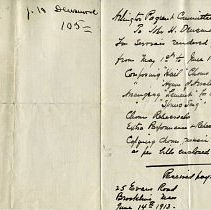 J. H. Densmore
105 —
Arlington Pageant Committee
To John H. Densmore
For Services rendered
From May 12th to June 1
Composing "Hail" Chorus
"Hymn of
Arranging "Lament" for
Chorus Rehearsals
Extra Performance &
Copying Chorus
as per bills enclosed
Received pay
25 Evans Road
Brookline, Mass
June 14th 1913.